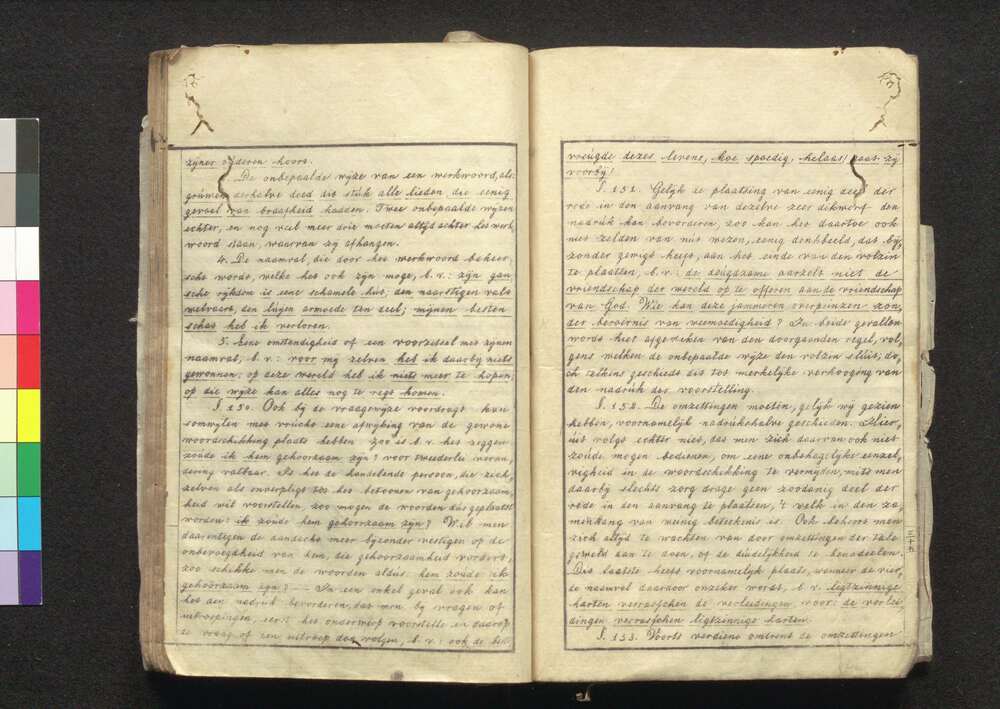 zijner ouderen hoort.
De onbepaalde wijze van een werkwoord, als:
grúwen derhalve deed dit stúk alle lieden die eenig
gevoel van braafheid hadden. Twee onbepaalde wijzen
echter, en nog veel meer drie moeten altijd achter het werk,
woord staan, waarvan zij afhangen.
4. De naamval, die door het werkwoord beheer,
scht wordt, welke het ook zijn moge, b.v.: zijn gan
sche rijkdom is eene schamele hút; den naarstigen valt
welvaart, den lúijen armoede ten deel; mijnen besten
schat heb ik verloren.
5. Eene omstandigheid of een voorzetsel met zijnen
naamval, b.v: voor mij zelven heb ik daarbij niets
gewonnen; op deze wereld heb ik niets meer te hopen;
op die wijze kan alles nog te regt komen.
§. 150. Ook bij de vraagswijze voordragt kan
somwijlen met vrúcht eene afwijking van de gewone
woordschikking plaats hebben zoo is b.v. het zeggen
zoúde ik hem gehoorzaam zijn? voor tweederlei veran,
dering vatbaar. Is het de handelende persoon, die zich
zelven als onverpligt tot het betoonen van gehoorzaam,
heid wil voorstellen, zoo mogen de woorden dús geplaatst
worden: ik zoúde hem gehoorzaam zijn? Wil men
daarentegen de aandacht meer bijzonder vestigen op de
onbevoegdheid van hem, die gehoorzaamheid vordert,
zoo schikke men de woorden aldús: hem zoúde ik
gehoorzaam zijn? — In een enkel geval ook kan
het den nadrúk bevorderen, dat men bij vragen of
uitroepingen, eerst het onderwerp voorstelle en daarop
de vraag of een uitroep doe volgen, b.v: ook de bes
vreúgde dezes levens, hoe spoedig, helaas! gaat zij
voorbij!
§. 151. Gelijk de plaatsing van eenig deel der
rede in den aanvang van dezelve zeer dikwerf den
nadrúk kan bevorderen, zoo kan het daartoe ook
niet zelden van nút wezen, eenig denkbeeld, dat bij,
zonder gewigt heeft, aan het einde van den volzin
te plaatsen, b.v: de deúgdzame aarzelt niet de
vriendschap der wereld op te offeren aan de vriendschap
van God. Wie kan deze jammeren overpeinzen zon,
der beroernis van weemoedigheid? In beide gevallen
wordt hier afgeweken van den doorgaanden regel, vol,
gens welken de onbepaalde wijze den volzin slúit, do,
ch telkens geschiedt dit tot merkelijke verhooging van
den nadrúk der voorstelling.
§. 152. De omzettingen moeten, gelijk wij gezien
hebben, voornamelijk nadrúkshalve geschieden. Hier,
úit volgt echter niet, dat men zich daarvan ook niet
zoúde mogen bedienen, om eene onbehagelijke eenzel,
vigheid in de woordschikking te vermijden, mits men
daarbij slechts zorg drage geen zoodanig deel der
rede in den aanvang te plaatsen, 't welk in den za,
menhang van weinig beteekenis is. Ook behoort men
zich altijd te wachten van door omzettingen der tale
geweld aan te doen, of de dúidelijkheid te benadeelen.
Dit laatste heeft voornamelijk plaats, wanneer de vier,
de naamval daardoor onzeker wordt, b.v. ligtzinnige
harten verafschen de verleidingen, voor: de verlei
dingen verafschen ligtzinnige harten.
§. 153. Voorts verdient omtrent de omzettingen
三十五